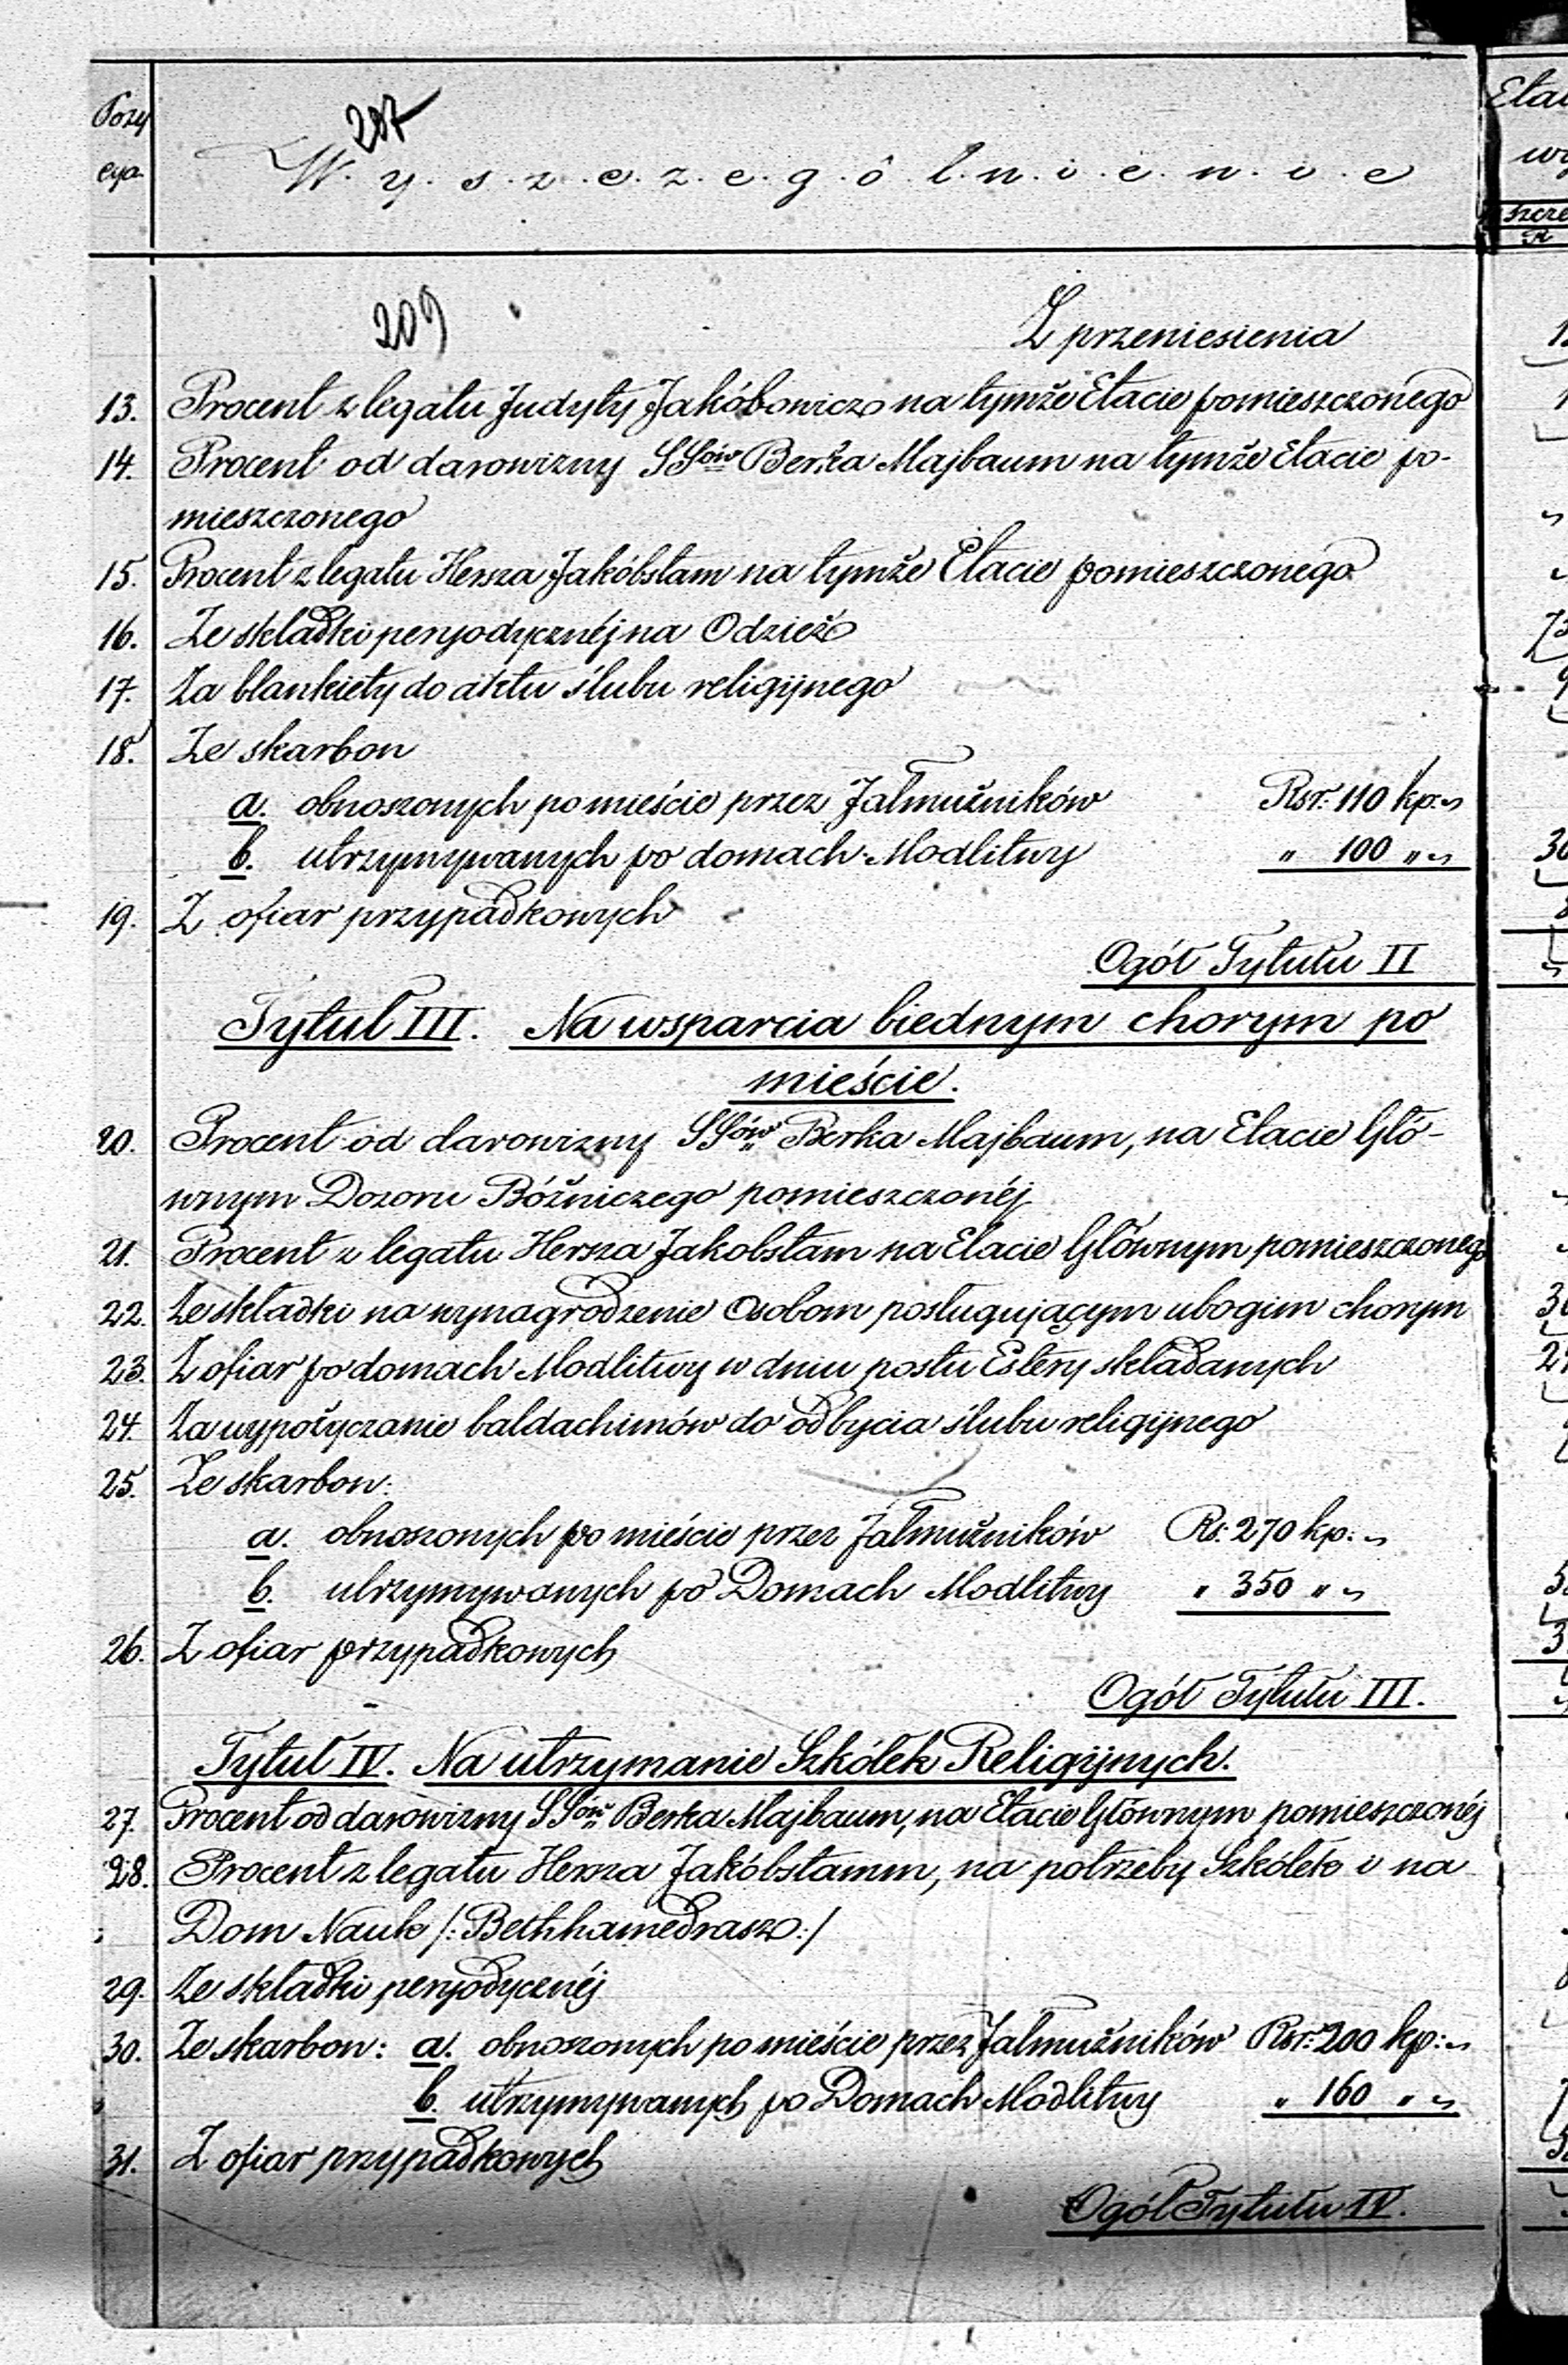 Pozy
cya
207
W.y.s.z.c.z.e.g.ó.l.n.i.e.n.i.e
209
Z przeniesienia
13. Procent z legatu Judyty Jakóbowicz na tymże Etacie pomieszczonego
14. Procent od darowizny SSów Berka Majbaum na tymże Etacie po-
mieszczonego
15. Procent z legatu Hersza Jakóbstam na tymże Etacie pomieszczonego
16. Ze składki peryodycznéj na Odzież
17. Za blankiety do aktu ślubu religijnego
18. Ze skarbon
a. obnoszonych po mieście przez Jałmużników Rsr: 110 kp: „
b. utrzymywanych po domach Modlitwy „ 100 „ „
19. Z ofiar przypadkowych
Ogół Tytułu II
Tytuł III. Na wsparcia biednym chorym po
mieście.
20. Procent od darowizny SSów Berka Majbaum, na Etacie Głó-
wnym Dozoru Bóżniczego pomieszczonéj
21. Procent z legatu Hersza Jakobstam na Etacie Głównym pomieszczonego
22. Ze składki na wynagrodzenie Osobom posługującym ubogim chorym
23. Z ofiar po domach Modlitwy w dniu postu Estery składanych
24. Za wypożyczanie baldachimów do odbycia ślubu religijnego
25. Ze skarbon:
a. obnoszonych po mieście przez Jałmużników Rs: 270 kp: „
b. utrzymywanych po Domach Modlitwy „ 350 „ „
26. Z ofiar przypadkowych
Ogół Tytułu III.
Tytuł IV. Na utrzymanie Szkółek Religijnych.
27. Procent od darowizny SSów Berka Majbaum, na Etacie Głównym pomieszczonéj
28. Procent z legatu Hersza Jakóbstamm, na potrzeby Szkółek i na
Dom Nauk /: Bethhamedrasz :/
29. Ze składki peryodycznéj
30. Ze skarbon: a. obnoszonych po mieście przez Jałmużników Rsr: 200 kp: „
b. utrzymywanych po Domach Modlitwy „ 160 „ „
31. Z ofiar przypadkowych
Ogół Tytułu IV.